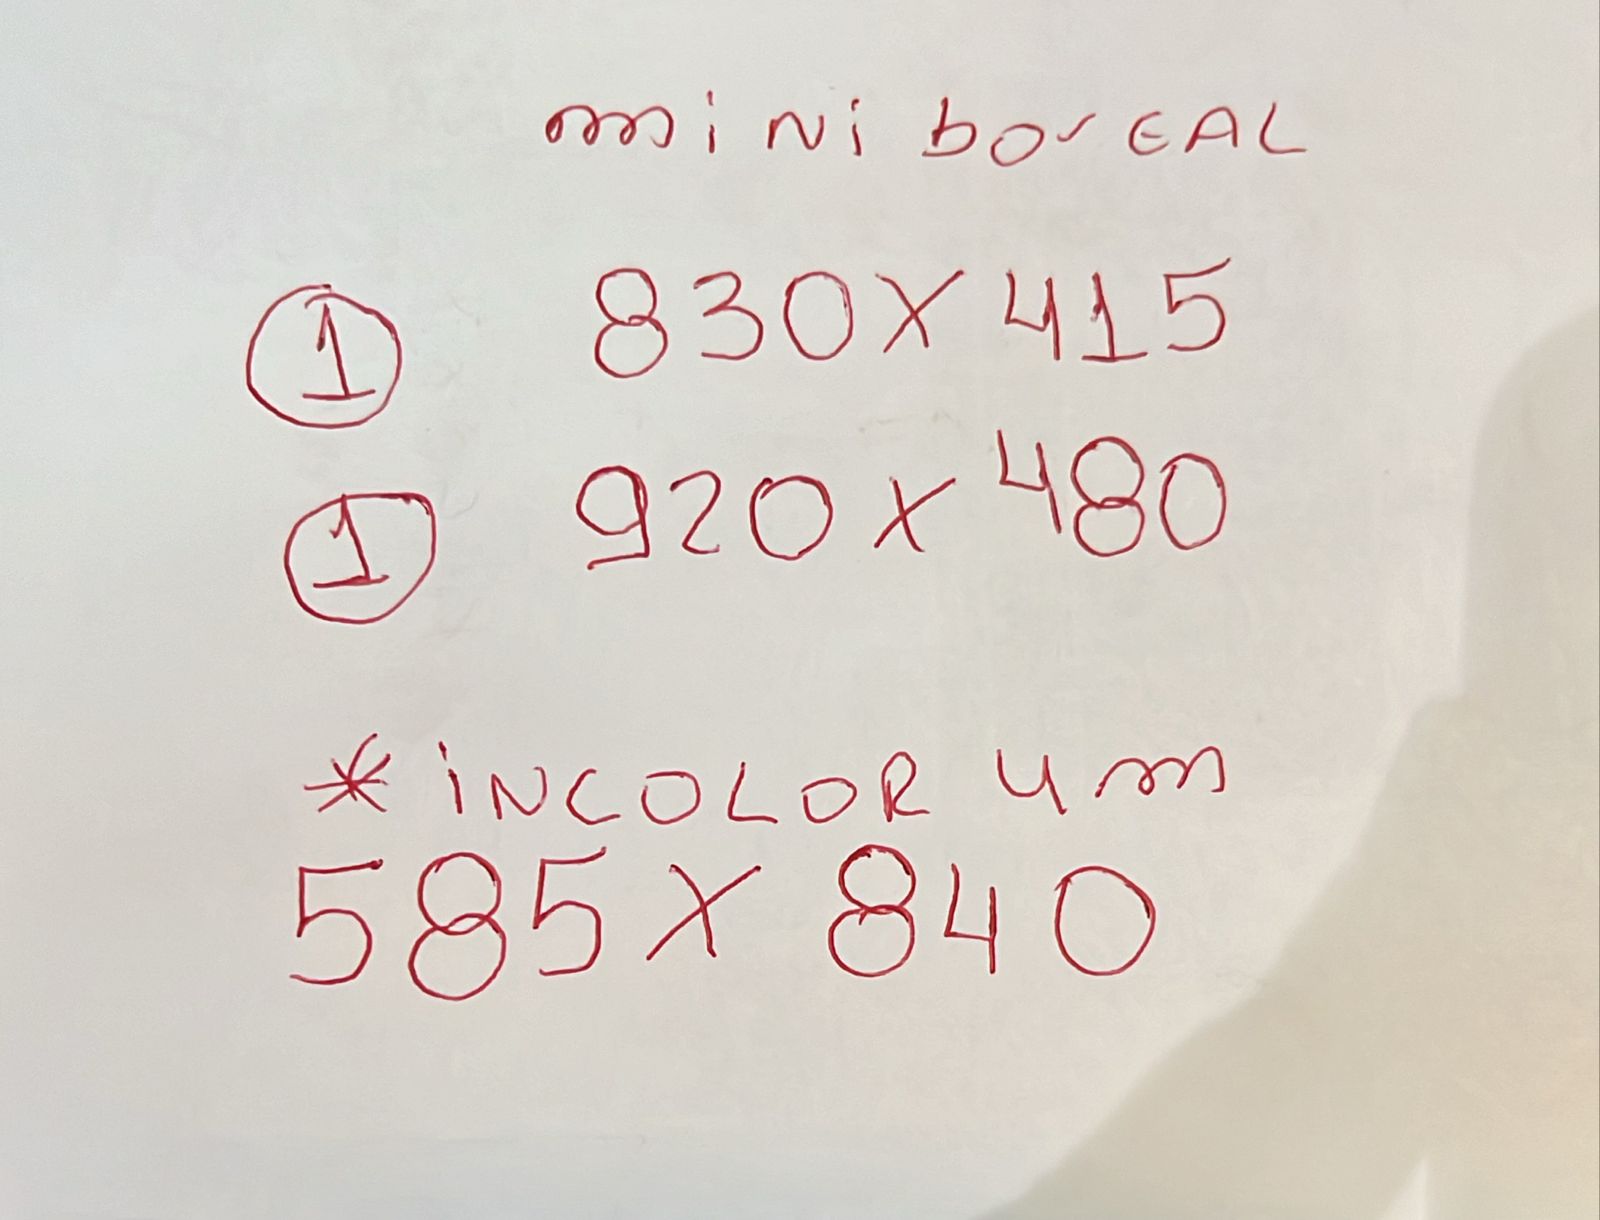 mini borEAL
1 830X415
1 920x480
* iNCOLOR 4m
585X 840